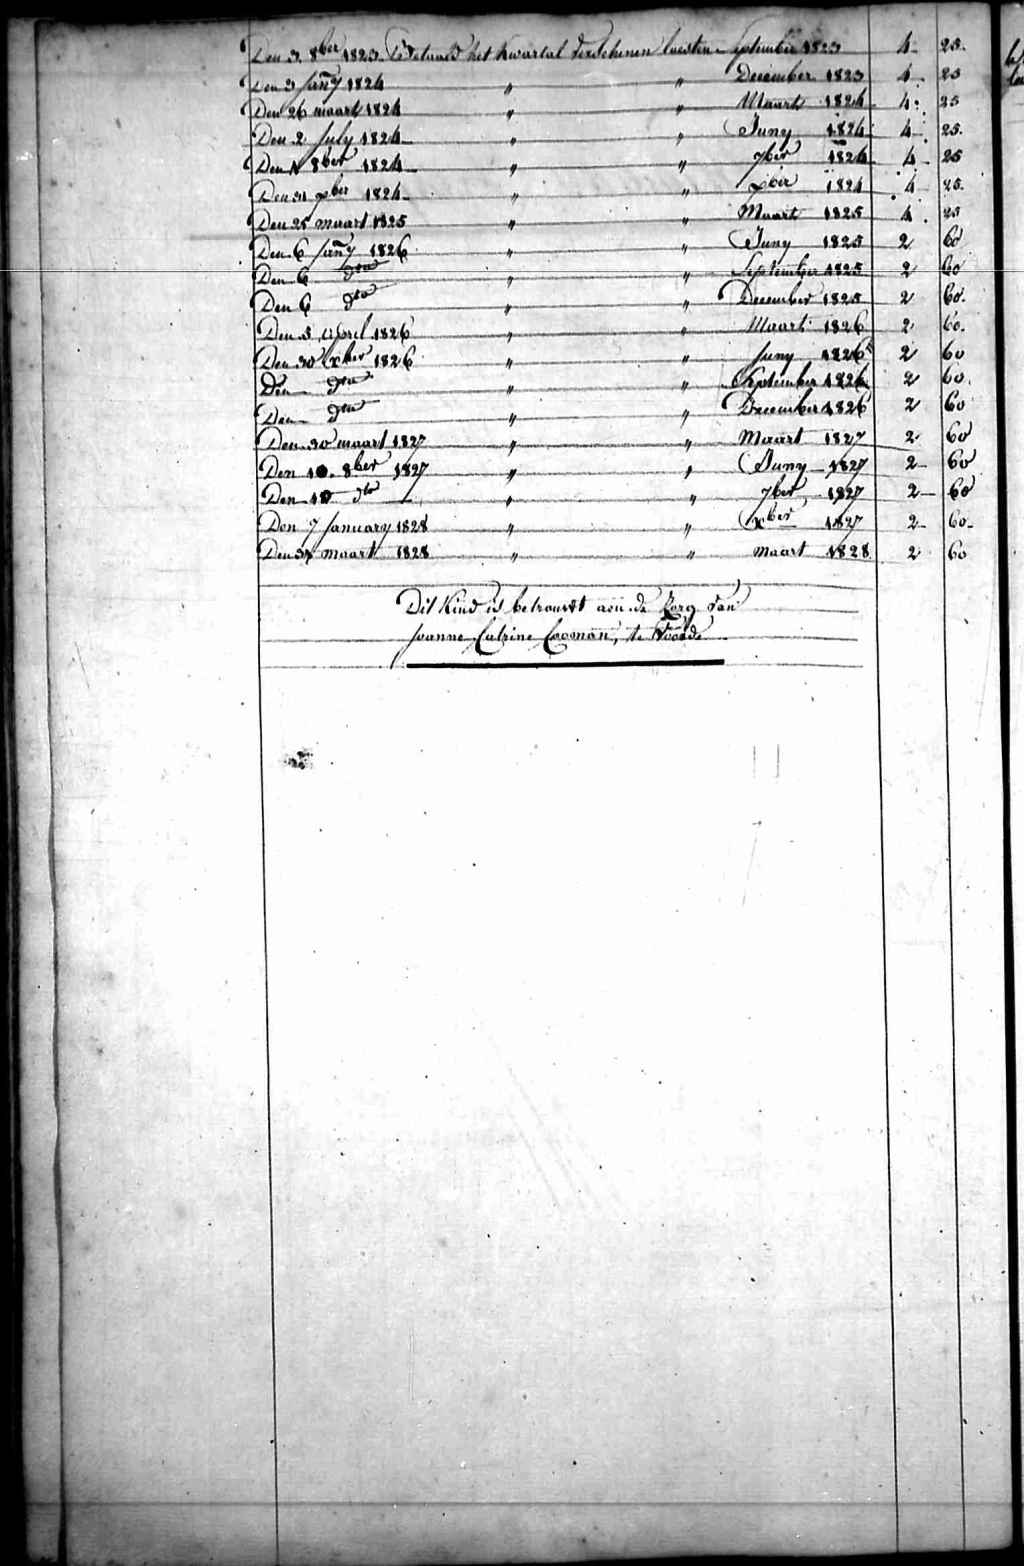 Den 3 8ber 1823 Betaald het Kwartal verschenen laesten September 1823 4 25
Den 3 Jany 1824 " " December 1823 4 25
Den 26 maart 1824 " " Maart 1824 4 25
Den 2 July 1824 " " Juny 1824 4 25
Den 1 8ber 1824 " " 7ber 1824 4 25
Den 31 xber 1824 " " xber 1824 4 25
Den 25 maart 1825 " " Maart 1825 4 25
Den 6 Jany 1826 " " Juny 1825 2 60
Den 6 dto " " September 1825 2 60
Den 6 dto " " December 1825 2 60
Den 5 April 1826 " " Maart 1826 2 60
Den 30 xber 1826 " " Juny 1826 2 60
Den dto " " September 1826 2 60
Den dto " " December 1826 2 60
Den 30 maart 1827 " " Maart 1827 2 60
Den 10 8ber 1827 " " Juny 1827 2 60
Den 10 dto " " 7ber 1827 2 60
Den 7 January 1828 " " xber 1827 2 60
Den 31 maart 1828 " " maart 1828 2 60
Dit Kind is betrouwt aen de Zorg van
Joanne Catrine Cooman, te Voorde